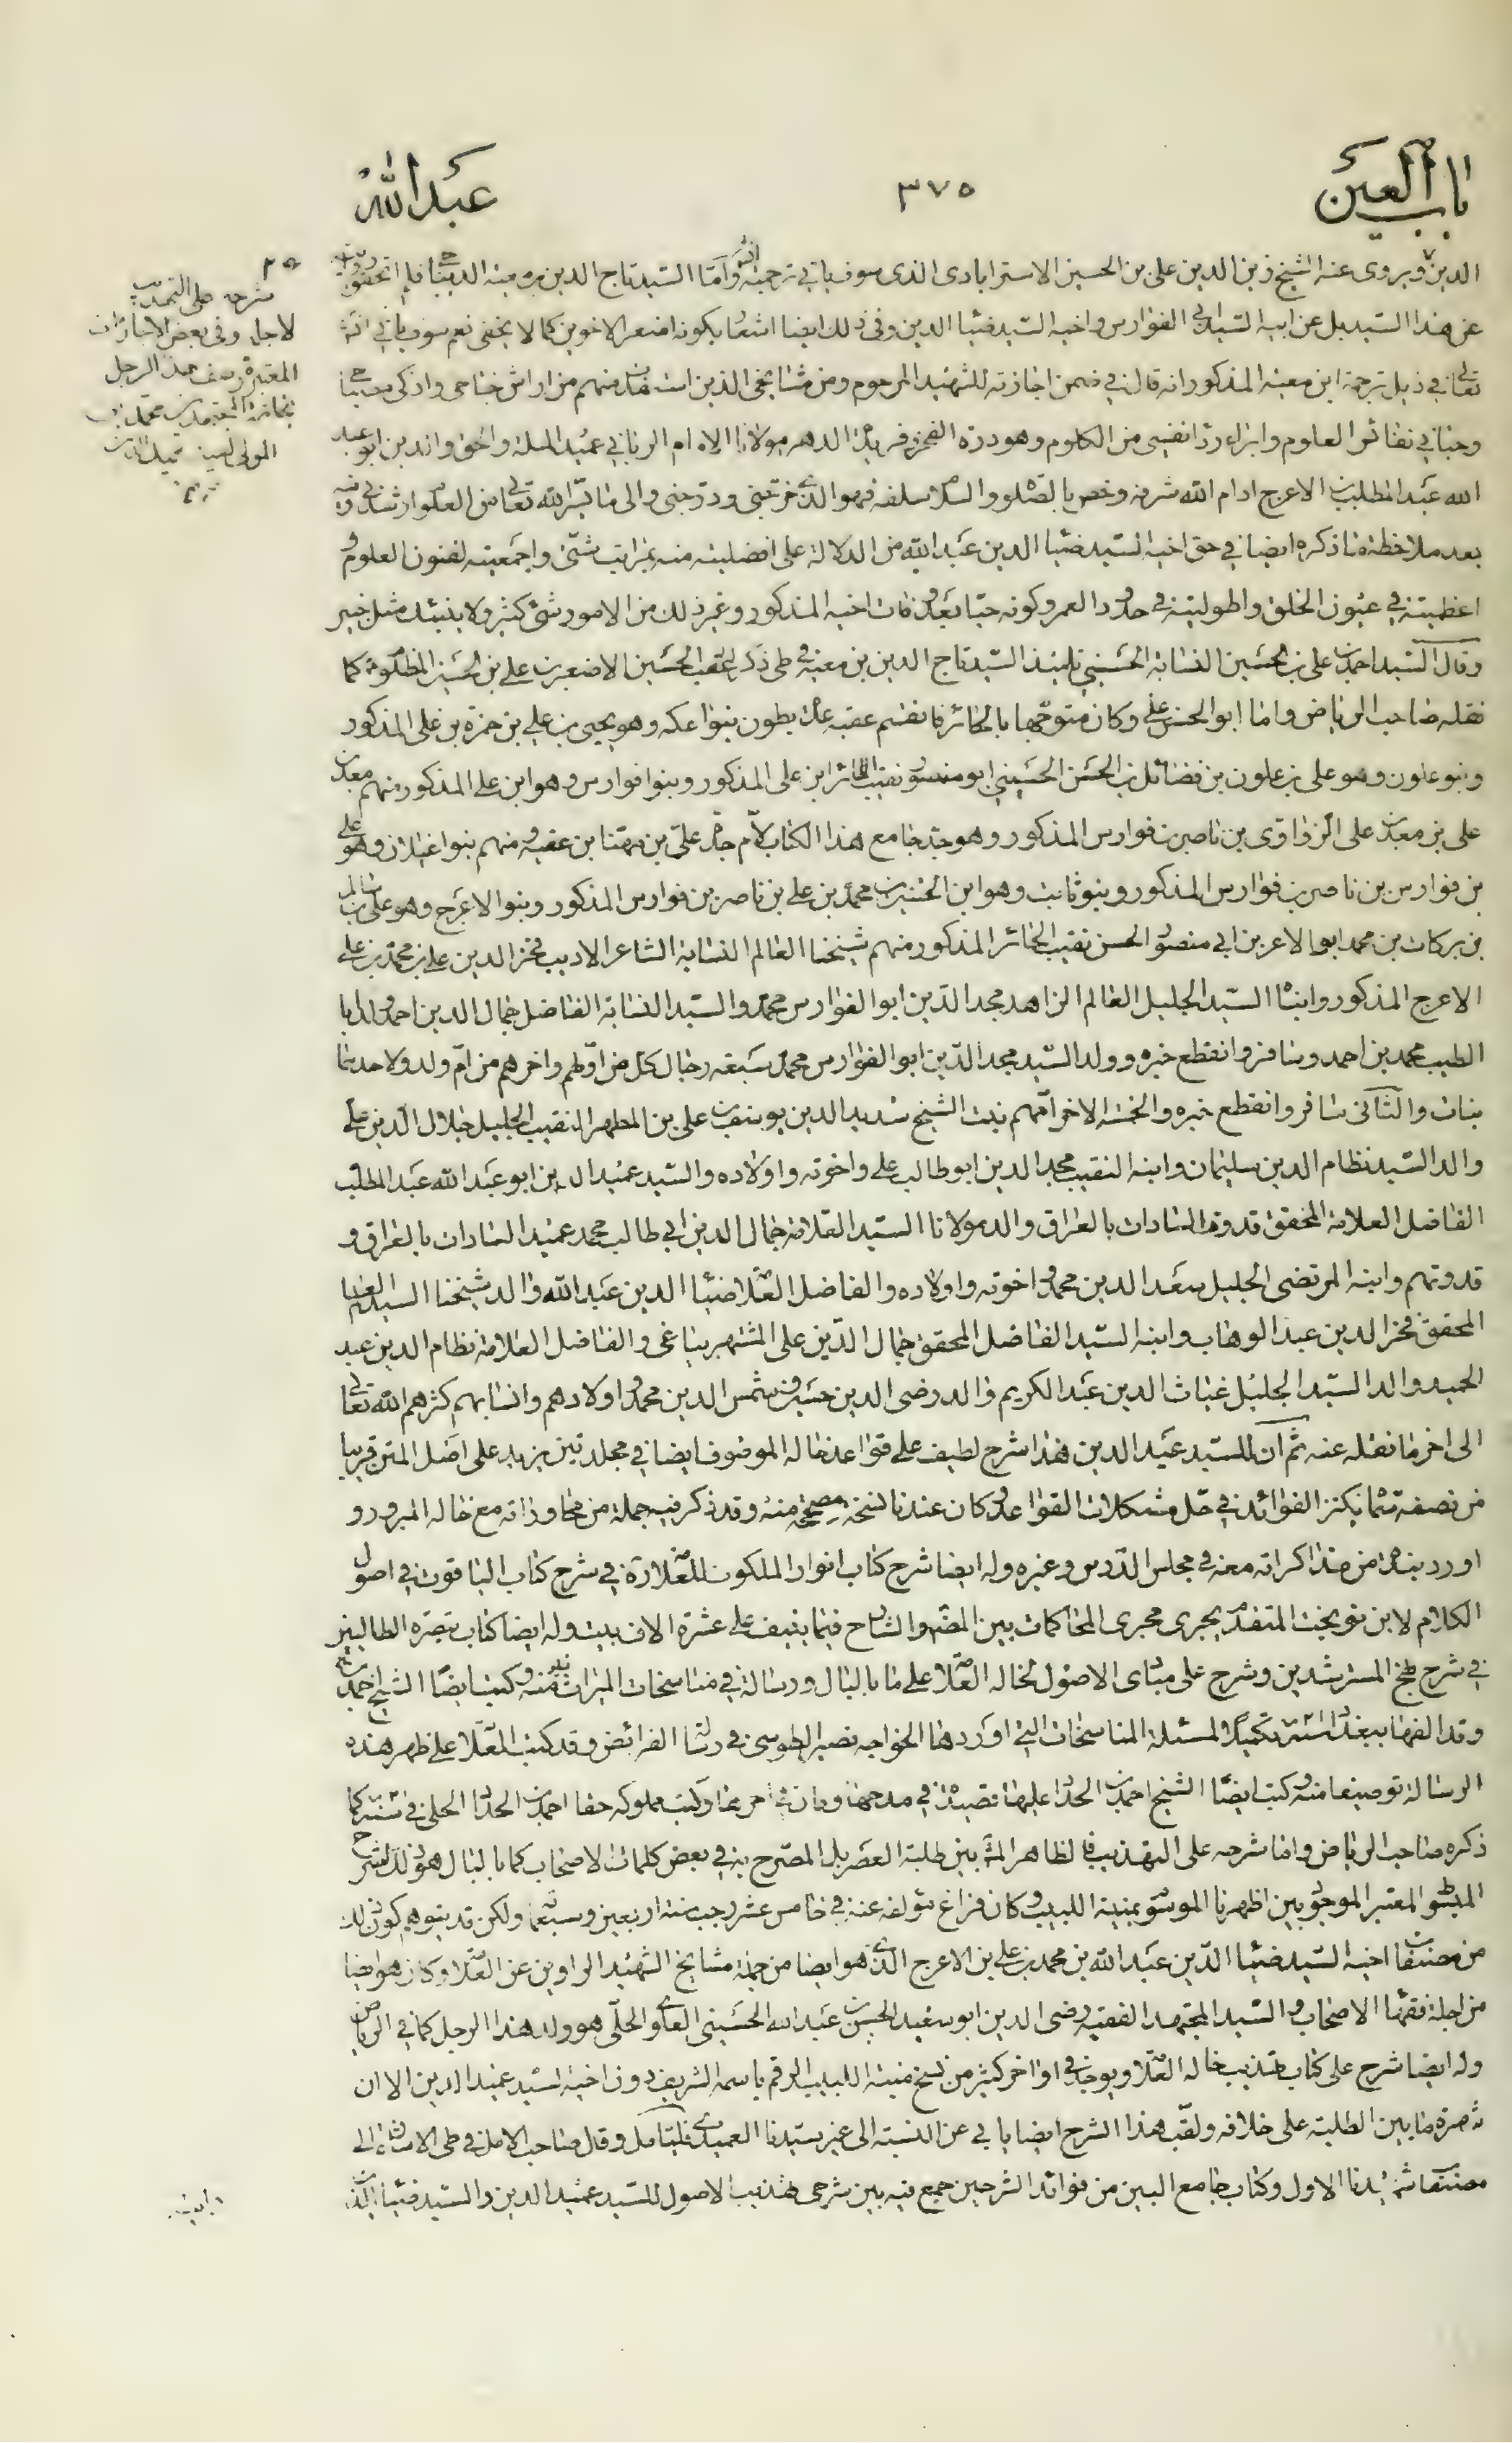 باب العين
٣٧٥
عبد الله
الدين ويروى عنه الشيخ زين الدين على بن الحسين الاسترابادى الذى سوف ياتى فى ترجمته واما السيد تاج الدين بن معية الديباجى فلم اتحقق روايته
عن هذا السيد بل عن ابيه السيد ابى الفوارس واخيه السيد ضياء الدين وفى ذلك ايضا اشعار بكونه اصغر الاخوين كما لا يخفى نعم سوف ياتى انش
تعالى فى ذيل ترجمة ابن معية المذكور انه قال فى ضمن اجازته للشهيد المرحوم ومن مشايخى الذين استفدت منهم من اراش جناحى واذكى مصباحى
وحبانى نفائس العلوم وابراء رذا نفسى من الكلوم وهو درة الفخر وفريدة الدهر مولانا الامام الربانى عميد الملة والحق والدين ابو عبد
الله عبد المطلب بن الاعرج ادام الله شرفه وخص بالصلوة والسلام سلفه فهو الذى خرجنى ودرجنى والى ما يسر الله تعالى من العلوم ارشدنى وفيه
بعد ملاحظة ما ذكره ايضا فى حق اخيه السيد ضياء الدين عبد الله من الدلالة على افضليته منه بمراتب شتى واجمعيته لفنون العلوم و
اعظميته فى عيون الخلق واطوليته فى حدود العمر وكونه حيا بعد وفات اخيه المذكور وغير ذلك من الامور شئ كثير ولا ينبئك مثل خبير
وقال السيد احمد بن على بن الحسين النسابة الحسينى تلميذ السيد تاج الدين بن معية فى طى ذكر عقب الحسين الاصغر بن على بن الحسين المظلوم كما
نقله صاحب الرياض واما ابو الحسن على وكان متوجها بالحائر فانقسم عقبه على بطون بنوا عكه وهو يحيى بن على بن حمزة بن على المذكور
وبنو علون وهو على بن علون بن فضائل بن الحسن الحسينى ابو منصور نقيب الحائر ابن على المذكور وبنوا فوارس وهو ابن على المذكور منهم معد بن
على بن معد بن على الزواوى بن ناصر بن فوارس المذكور وهو جد جامع هذا الكتاب لام جده على بن مهنا بن عقبه ومنهم بنوا غيلان وهو على
بن فوارس بن ناصر بن فوارس المذكور وبنو ثابت وهو ابن الحسين بن محمد بن على بن ناصر بن فوارس المذكور وبنو الاعرج وهو على بن سالم
بن بركات بن محمد ابى الاعز بن ابى منصور الحسن نقيب الحائر المذكور منهم شيخنا العالم النسابة الشاعر الاديب فخر الدين على بن محمد بن على
الاعرج المذكور وابناه السيد الجليل العالم الزاهد مجد الدين ابو الفوارس محمد والسيد النسابة الفاضل جمال الدين احمد ولد ابا
الطيب محمد بن احمد وسافر وانقطع خبره وولد السيد مجد الدين ابو الفوارس محمد سبعة رجال كل من اولهم واخرهم من ام ولد ولاحدهما
بنات والثانى سافر وانقطع خبره والخمسة الاخر امهم بنت الشيخ سديد الدين يوسف بن على بن المطهر النقيب الجليل جلال الدين على
والد السيد نظام الدين سليمان وابنه النقيب مجد الدين ابو طالب على واخوته واولاده والسيد عميد الدين ابو عبد الله عبد المطلب
الفاضل العلامة المحقق قدوة السادات بالعراق والد مولانا السيد العلامة جمال الدين ابى طالب محمد عميد السادات بالعراق و
قدوتهم وابنه المرتضى الجليل سعد الدين محمد واخوته واولاده والفاضل العلامة ضياء الدين عبد الله والد شيخنا السيد العالم
المحقق فخر الدين عبد الوهاب وابنه السيد الفاضل المحقق جمال الدين على المشتهر بياغى والفاضل العلامة نظام الدين عبد
الحميد والد السيد الجليل غياث الدين عبد الكريم والد رضى الدين حسين وشمس الدين محمد واولادهم وانسابهم كثرهم الله تعالى
الى اخر ما نقله عنه ثم ان للسيد عميد الدين هذا شرح لطيف على قواعد خاله الموصوف ايضا فى مجلدتين يزيد على اصل المتن قريبا
من نصفه سماه بكنز الفوائد فى حل مشكلات القواعد وكان عندنا نسخة مصححة منه وقد ذكر فيه جملة من محاوراته مع خاله المبرور و
اورد نبذة من مذاكراته معه فى مجلس الدرس وغيره وله ايضا شرح كتاب انوار الملكوت للعلامة ره فى شرح كتاب الياقوت فى اصول
الكلام لابن نوبخت المتقدم يجرى مجرى المحاكمات بين المصنف والشارح فيما ينيف على عشرة الاف بيت وله ايضا كتاب تبصرة الطالبين
فى شرح نهج المسترشدين وشرح على مبادى الاصول لخاله العلامة على ما بالبال ورسالة فى مناسخات الميراث منه وكتب ايضا الشيخ احمد بن
وقد الفها ببغداد تكميلا لمسئلة المناسخات التى اوردها الخواجه نصير الطوسى فى رسالة الفرائض وقد كتب العلامة على ظهر هذه
الرسالة توصيفا منه وكتب ايضا الشيخ احمد بن الحداد عليها قصيدة فى مدحها وكتب مملوكه حقا احمد بن الحداد الحلى فى سنة كما
ذكره صاحب الرياض واما شرحه على التهذيب فالظاهر المش بين طلبة العصر بل المصرح به فى بعض كلمات الاصحاب كما بالبال هو ذلك الشرح
المبسوط المعتبر الموجود بين اظهرنا الموسوم بمنية اللبيب وكان فراغ مؤلفه عنه فى خامس عشر رجب سنة اربعين وسبعمائة ولكن قد يتوهم كون ذلك
من مصنفات اخيه السيد ضياء الدين عبد الله بن محمد بن على بن الاعرج الذى هو ايضا من جملة مشايخ الشهيد الراوين عن العلامة وكان هو ايضا
من اجلة فقهاء الاصحاب والسيد المجتهد الفقيه رضى الدين ابو سعيد الحسن بن عبد الله الحسينى العلوى الحلى هو ولد هذا الرجل كما فى الرياض
وله ايضا شرح على كتاب تهذيب خاله العلامة ويوجد فى اواخر كثير من نسخ منية اللبيب الرقم باسمه الشريف دون اخيه السيد عميد الدين الا ان
شهرة ما بين الطلبة على خلافه ولقب هذا الشرح ايضا يابى عن النسبة الى غير سيدنا العميدى فليتامل وقال صاحب الامل فى طى الاشارة الى
مصنفات شهيدنا الاول وكتاب جامع البين من فوائد الشرحين جمع فيه بين شرحى تهذيب الاصول للسيد عميد الدين والسيد ضياء الدين
شرحه على التهذيب
لاجل وفى بعض الاجازات
المعتبرة وصف هذا الرجل
بخاتمة المجتهدين محمد بن
المولى السيد عميد الدين